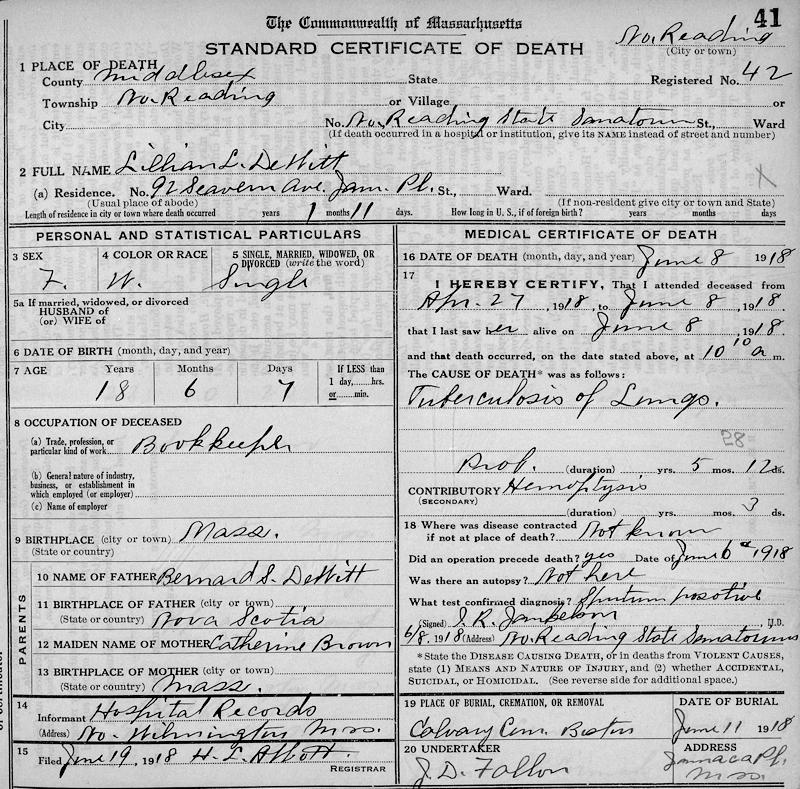 41
The Commonwealth of Massachusetts
STANDARD CERTIFICATE OF DEATH
No. Reading
(City or town)
1 PLACE OF DEATH
County Middlesex State Registered No. 42
Township No. Reading or Village or
City No. No. Reading State Sanatorium St., Ward
(If death occurred in a hospital or institution, give its NAME instead of street and number)
2 FULL NAME Lillian L. DeWitt
(a) Residence. No. 92 Seavern Ave. Jam. Pl. St., Ward.
(Usual place of abode) (If non-resident give city or town and State)
Length of residence in city or town where death occurred years 1 months 11 days. How long in U. S., if of foreign birth? years months days
PERSONAL AND STATISTICAL PARTICULARS
3 SEX 4 COLOR OR RACE 5 SINGLE, MARRIED, WIDOWED, OR
DIVORCED (write the word)
F. W. Single
5a If married, widowed, or divorced
HUSBAND of
(or) WIFE of
6 DATE OF BIRTH (month, day, and year)
7 AGE Years Months Days If LESS than
1 day, hrs.
or min.
18 6 7
8 OCCUPATION OF DECEASED
(a) Trade, profession, or
particular kind of work Bookkeeper
(b) General nature of industry,
business, or establishment in
which employed (or employer)
(c) Name of employer
9 BIRTHPLACE (city or town) Mass.
(State or country)
PARENTS
10 NAME OF FATHER Bernard S. DeWitt
11 BIRTHPLACE OF FATHER (city or town)
(State or country) Nova Scotia
12 MAIDEN NAME OF MOTHER Catherine Brown
13 BIRTHPLACE OF MOTHER (city or town)
(State or country) Mass.
14
Informant Hospital Records
(Address) No. Wilmington Mass.
15
Filed June 19, 1918 H. L. Abbott.
REGISTRAR
MEDICAL CERTIFICATE OF DEATH
16 DATE OF DEATH (month, day, and year) June 8 1918
17
I HEREBY CERTIFY, That I attended deceased from
Apr. 27, 1918, to June 8, 1918.
that I last saw her alive on June 8, 1918
and that death occurred, on the date stated above, at 10 10 a m.
The CAUSE OF DEATH* was as follows:
Tuberculosis of Lungs.
28
Prob. (duration) yrs. 5 mos. 12 ds.
CONTRIBUTORY Hemoptysis
(SECONDARY)
(duration) yrs. mos. 3 ds.
18 Where was disease contracted
if not at place of death? Not known
Did an operation precede death? yes Date of June 6 1918
Was there an autopsy? Not here
What test confirmed diagnosis? Sputum positive
(Signed) M.D.
6/8, 1918 (Address) No. Reading State Sanatorium
*State the DISEASE CAUSING DEATH, or in deaths from VIOLENT CAUSES,
state (1) MEANS AND NATURE OF INJURY, and (2) whether ACCIDENTAL,
SUICIDAL, or HOMICIDAL. (See reverse side for additional space.)
19 PLACE OF BURIAL, CREMATION, OR REMOVAL DATE OF BURIAL
Calvary Cem. Boston June 11 1918
20 UNDERTAKER ADDRESS
J. D. Fallon Jamaica Pl. Mass.